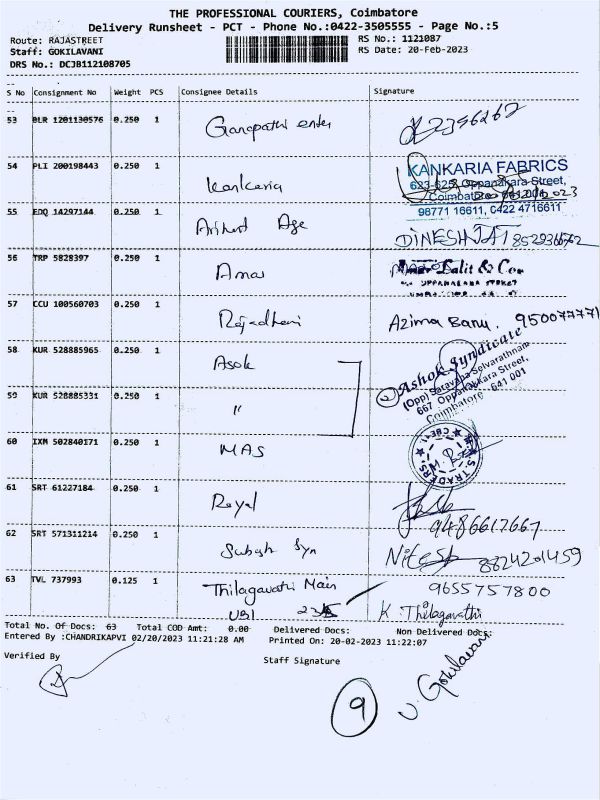 THE PROFESSIONAL COURIERS, Coimbatore
Delivery Runsheet - PCT - Phone No.:0422-3505555 - Page No.:5
Route: RAJASTREET
RS No.: 1121087
Staff: GOKILAVANI
RS Date: 20-Feb-2023
DRS No.: DCJB112108705
S No Consignment No Weight PCS Consignee Details Signature
53 BLR 1201130576 0.250 1 Ganapathi enter
54 PLI 200198443 0.250 1 kankaria
KANKARIA FABRICS
623-625, Oppanakara Street,
Coimbatore - 641 001
98771 16611, 0422 4716611
55 EDQ 14297144 0.250 1 Arihant Age DINESH JAT
56 TRP 5828397 0.250 1 Amar Lalit & Co
57 CCU 100560703 0.250 1 Rajadhani Azima Banu. 950077771
58 KUR 528885965 0.250 1 Asok
Ashok Syndicate
(Opp) Saravana Selvarathnam
667 Oppanakara Street,
Coimbatore - 641 001
59 KUR 528885331 0.250 1 "
60 IXM 502840171 0.250 1 MAS
TRADERS
61 SRT 61227184 0.250 1 Royal 9486617667
62 SRT 571311214 0.250 1 Subash Syn Nitesh 8824201459
63 TVL 737993 0.125 1 Thilagavathi Main 9655757800
UBI K. Thilagavathi
Total No. Of Docs: 63 Total COD Amt: 0.00 Delivered Docs: Non Delivered Docs:
Entered By :CHANDRIKAPVI 02/20/2023 11:21:28 AM Printed On: 20-02-2023 11:22:07
Verified By
Staff Signature
9
U. Gokilavani